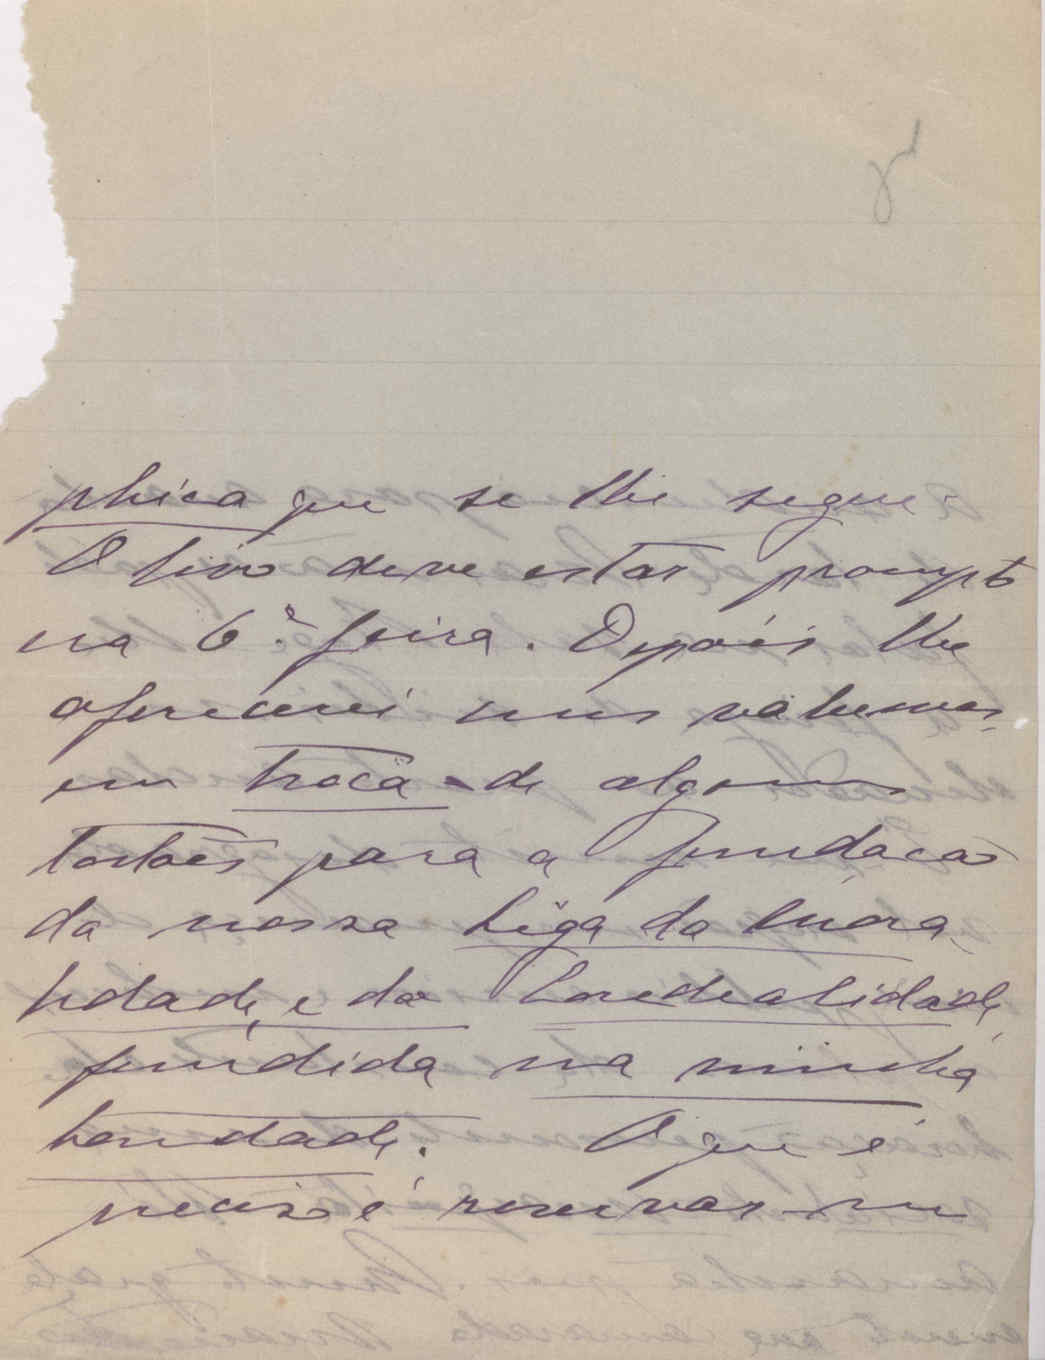 phica que se lhe segue.
O livro deve estar prompto
na 6.ª feira. Depois lhe
oferecerei uns volumes,
em troca de alguns
tostões para a fundacao
da nossa Liga da Mora
lidade, e da Cordealidade
fundida na minha
bondade. O que é
preciso é reservar-me